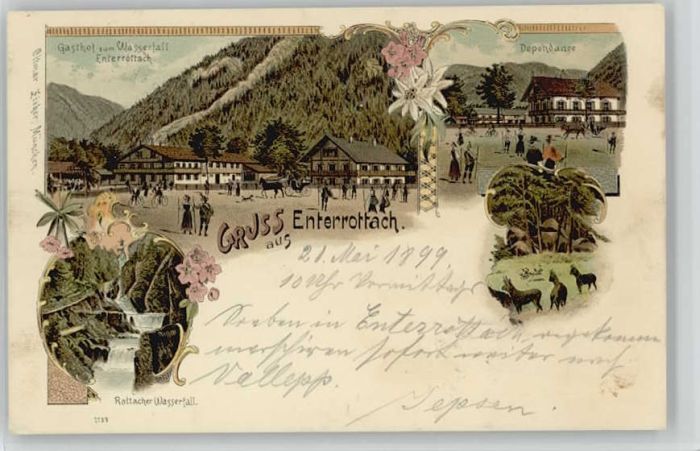 Gasthof zum Wasserfall
Enterrottach
Dependance
Ottmar Zieher, München.
GRUSS
aus
Enterrottach.
21. Mai 1899
10 Uhr Vormittags
Soeben in Enterrottach angekommen
marschiren sofort weiter nach
Vallepp.
Jepsen.
Rottacher Wasserfall.